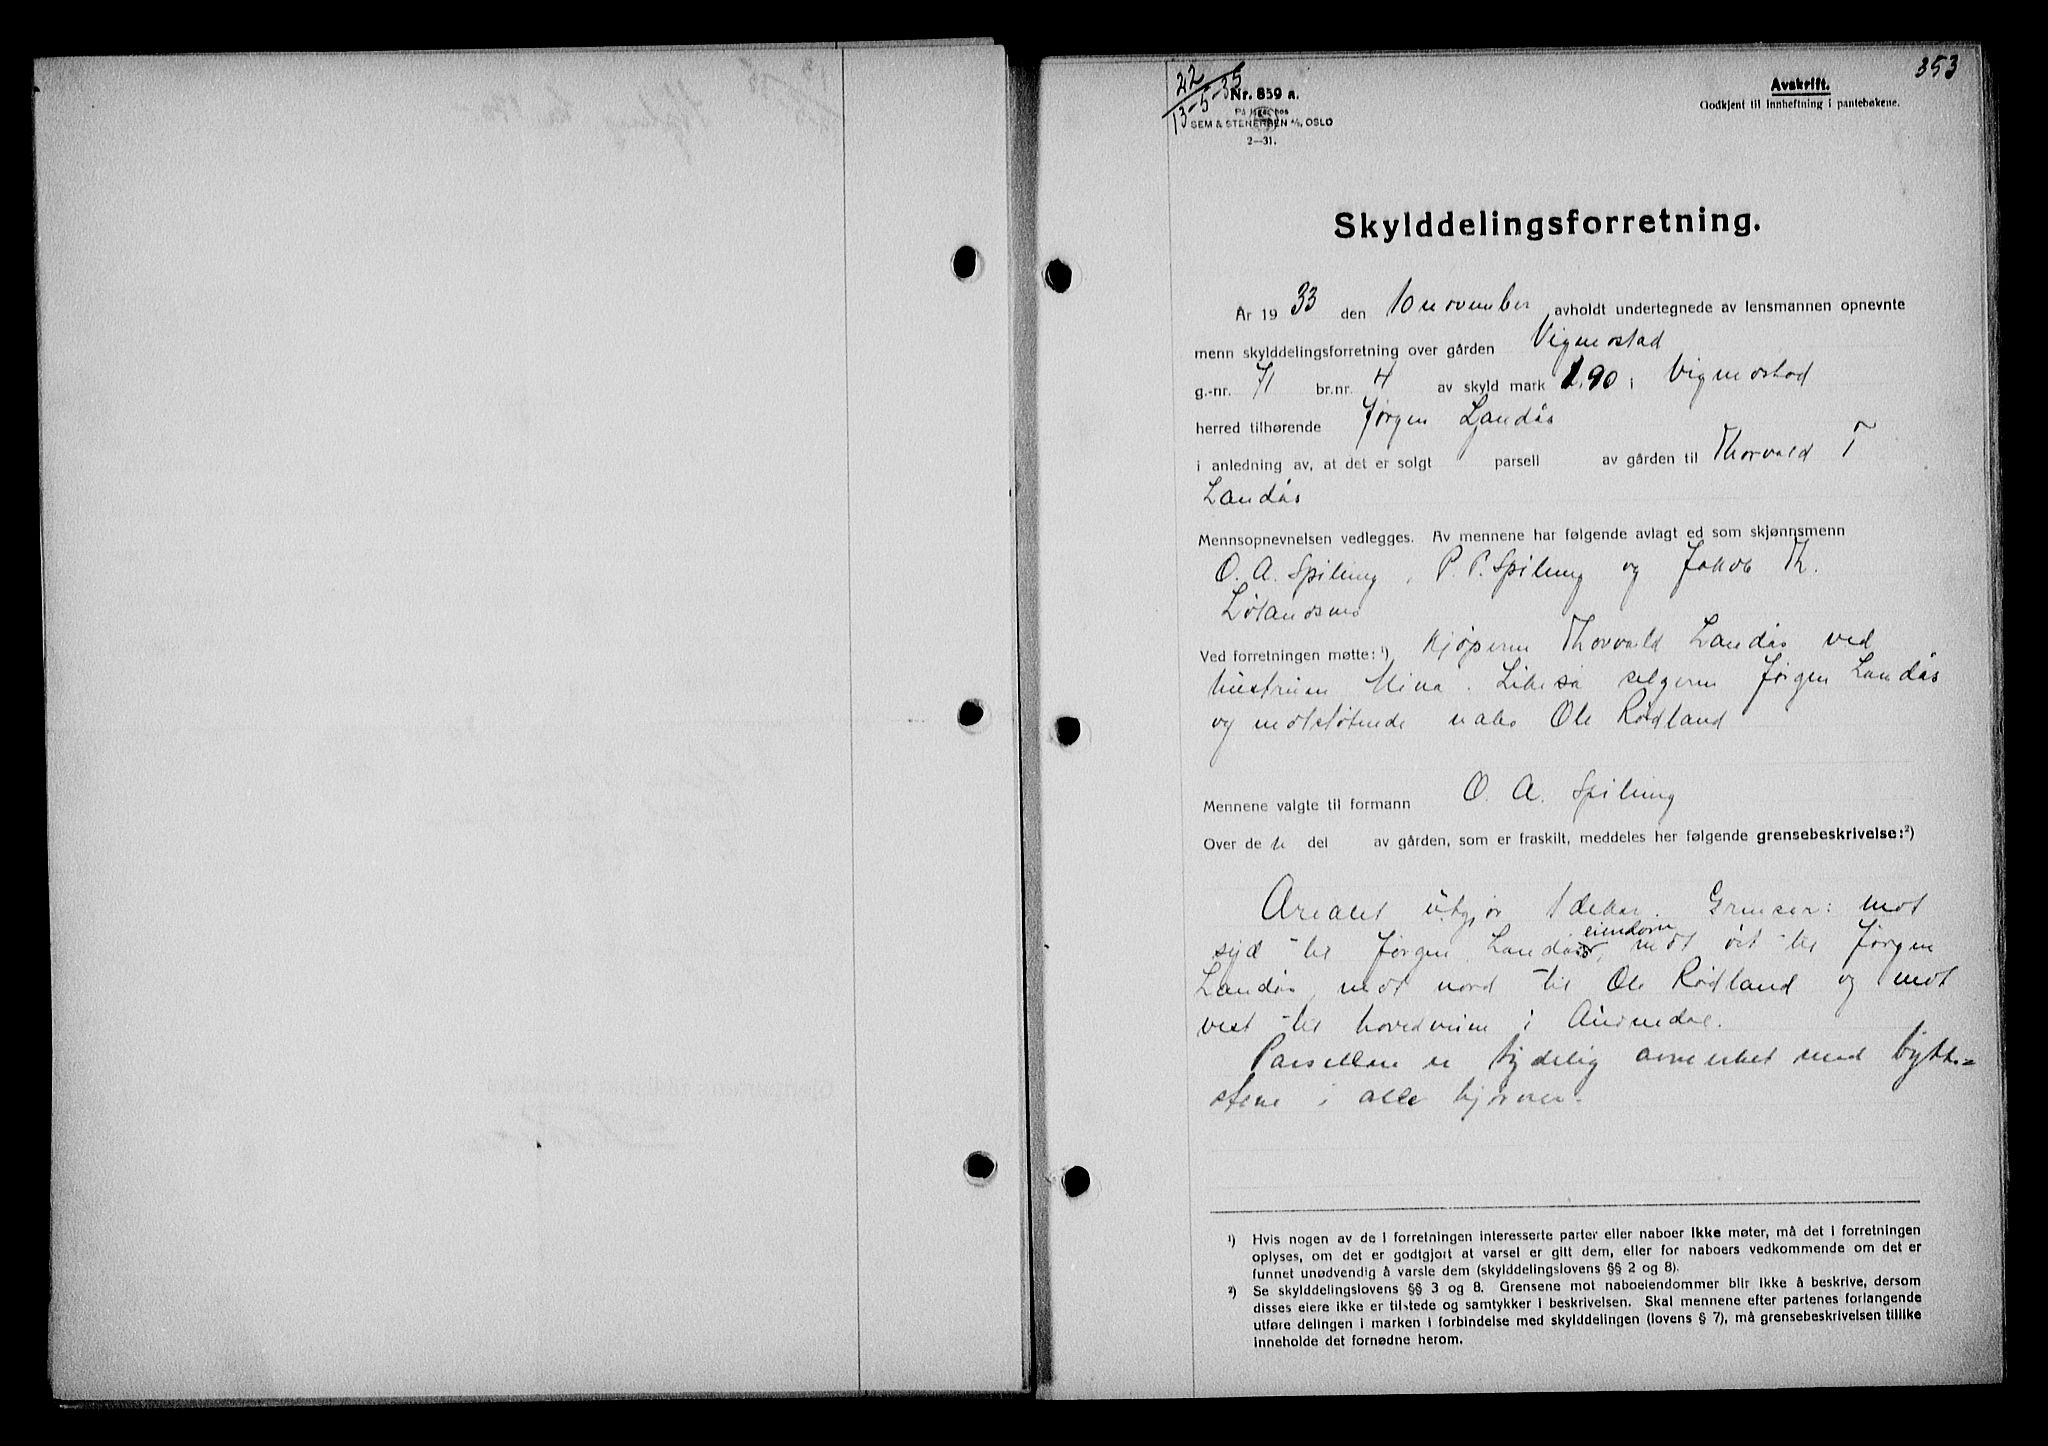 353
22
13-5-35
Nr. 859 a.
På lager hos
SEM & STENERSEN A/S, OSLO
2—31.
Avskrift.
Godkjent til innheftning i pantebøkene.
Skylddelingsforretning.
År 1933 den 10 november avholdt undertegnede av lensmannen opnevnte
menn skylddelingsforretning over gården Vigmostad
g.-nr. 71 br.nr. 4 av skyld mark 1.90 i Vigmostad
herred tilhørende Jørgen Landås
i anledning av, at det er solgt parsell av gården til Thorvald T
Landås
Mennsopnevnelsen vedlegges. Av mennene har følgende avlagt ed som skjønnsmenn
O. A. Spiling, P. P. Spiling og Jakob Th.
Lølandsmo
Ved forretningen møtte: ¹) Kjøperen Thorvald Landås ved
hustruen Mina. Likeså selgeren Jørgen Landås
og motstøtende nabo Ole Rødland
Mennene valgte til formann O. A. Spiling
Over de n del av gården, som er fraskilt, meddeles her følgende grensebeskrivelse: ²)
Arealet utgjør 1 dekar. Grenser: mot
eiendom
syd til Jørgen Landås, mot øst til Jørgen
Landås, mot nord til Ole Rødland og mot
vest til hovedveien i Audnedal.
Parsellen er tydelig avmerket med bytte=
stene i alle hjørner.
¹) Hvis nogen av de i forretningen interesserte parter eller naboer ikke møter, må det i forretningen
oplyses, om det er godtgjort at varsel er gitt dem, eller for naboers vedkommende om det er
funnet unødvendig å varsle dem (skylddelingslovens §§ 2 og 8).
²) Se skylddelingslovens §§ 3 og 8. Grensene mot naboeiendommer blir ikke å beskrive, dersom
disses eiere ikke er tilstede og samtykker i beskrivelsen. Skal mennene efter partenes forlangende
utføre delingen i marken i forbindelse med skylddelingen (lovens § 7), må grensebeskrivelsen tillike
inneholde det fornødne herom.